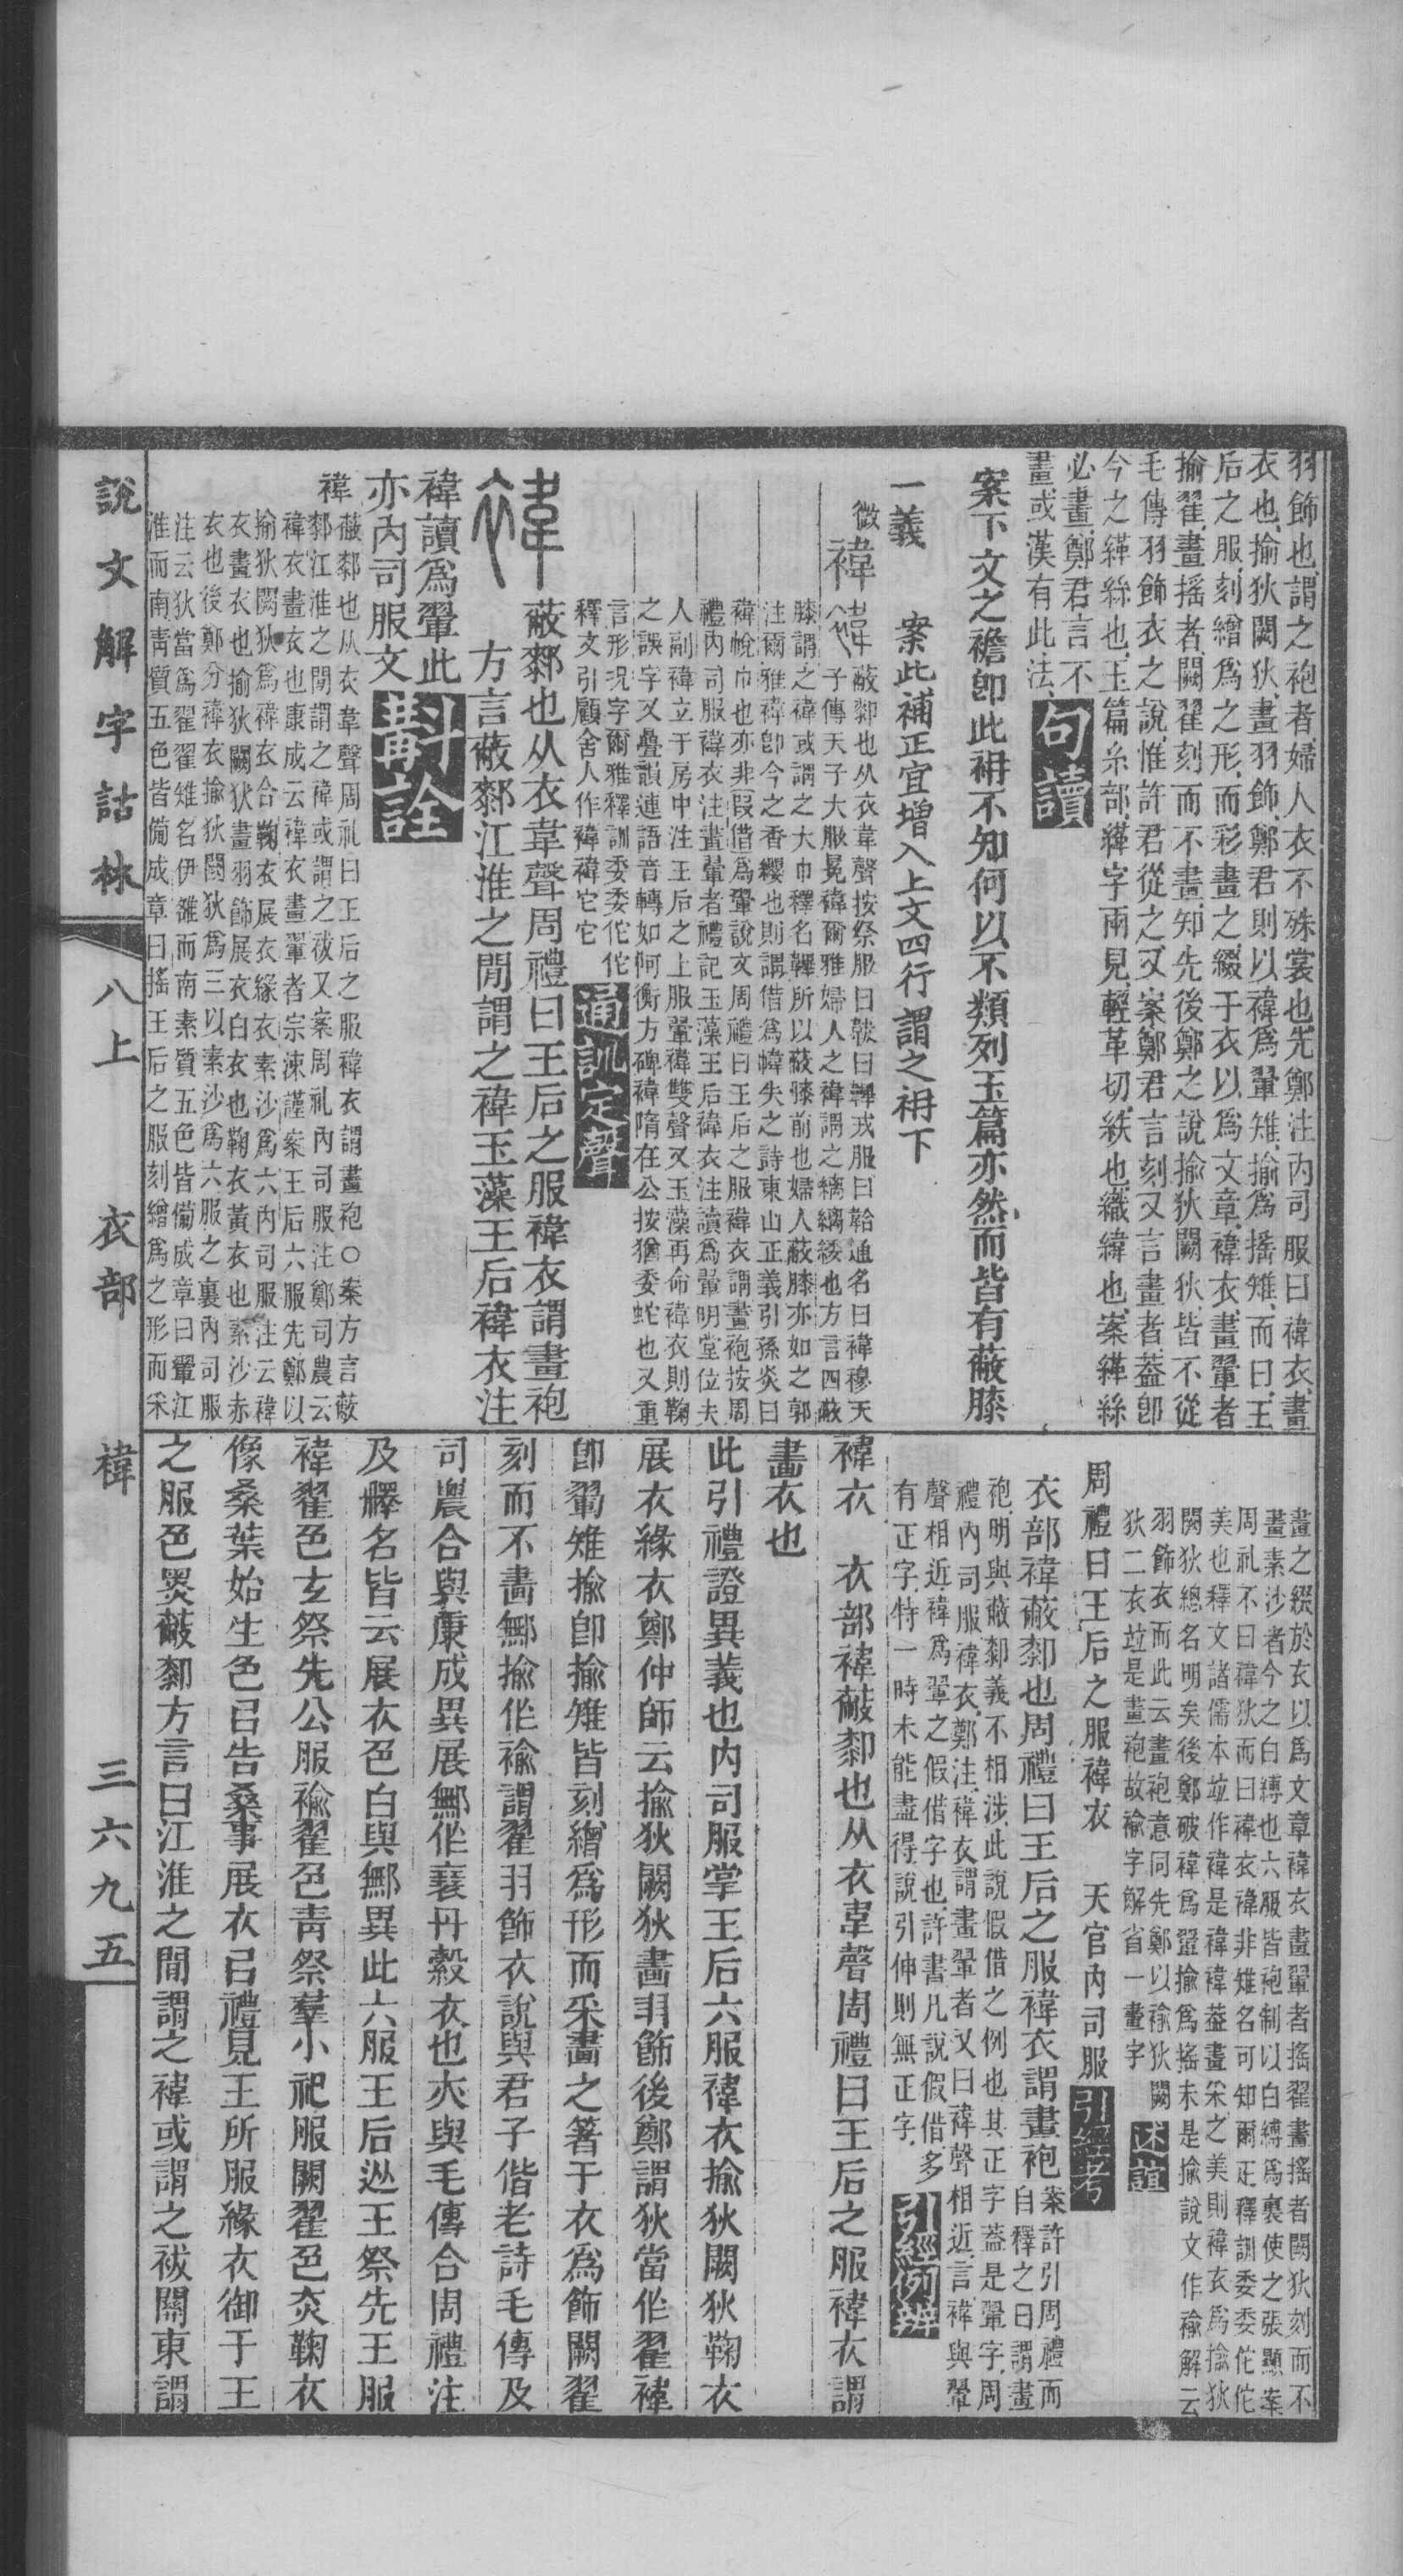 羽飾也謂之袍者婦人衣不殊裳也先鄭注內司服曰褘衣畫
衣也揄狄闕狄畫羽飾鄭君則以褘爲翬雉揄爲搖雉而曰王
后之服刻繒爲之形而彩畫之綴于衣以爲文章褘衣畫翬者
揄翟畫搖者闕翟刻而不畫知先後鄭之說揄狄闕狄皆不從
毛傳羽飾衣之說惟許君從之又案鄭君言刻又言畫者葢卽
今之緙絲也玉篇糸部緙字兩見輕革切紩也織緯也案緙絲
必畫鄭君言不
畫或漢有此法 句讀
案下文之襜卽此袡不知何以不類列玉篇亦然而皆有蔽膝
一義 案此補正宜增入上文四行謂之袡下
微 褘 蔽厀也从衣韋聲按祭服曰韍曰韠戎服曰韐通名曰褘穆天
子傳天子大服冕褘爾雅婦人之褘謂之縭縭緌也方言四蔽
膝謂之褘或謂之大巾釋名韠所以蔽膝前也婦人蔽膝亦如之郭
注爾雅褘卽今之香纓也則謂借爲幃失之詩東山正義引孫炎曰
褘帨巾也亦非 假借 爲翬說文周禮曰王后之服褘衣謂畫袍按周
禮內司服褘衣注畫翬者禮記玉藻王后褘衣注讀爲翬明堂位夫
人副褘立于房中注王后之上服翬褘雙聲又玉藻再命褘衣則鞠
之誤字又疊韻連語音轉如阿衡方碑褘隋在公按猶委蛇也又重
言形況字爾雅釋訓委委佗佗
釋文引顧舍人作褘褘它它 通訓定聲
褘 蔽厀也从衣韋聲周禮曰王后之服褘衣謂畫袍
方言蔽厀江淮之閒謂之褘玉藻王后褘衣注
褘讀爲翬此
亦內司服文 斠詮
褘 蔽厀也从衣韋聲周礼曰王后之服褘衣謂畫袍○案方言蔽
厀江淮之閒謂之褘或謂之祓又案周礼內司服注鄭司農云
褘衣畫衣也康成云褘衣畫翬者宗涑謹案王后六服先鄭以
揄狄闕狄爲褘衣合鞠衣展衣緣衣素沙爲六內司服注云褘
衣畫衣也揄狄闕狄畫羽飾展衣白衣也鞠衣黃衣也素沙赤
衣也後鄭分褘衣揄狄闕狄爲三以素沙爲六服之裏內司服
注云狄當爲翟翟雉名伊雒而南素質五色皆備成章曰翬江
淮而南靑質五色皆備成章曰搖王后之服刻繒爲之形而采
畫之綴於衣以爲文章褘衣畫翬者搖翟畫搖者闕狄刻而不
畫素沙者今之白縳也六服皆袍制以白縳爲裏使之張顯案
周礼不曰褘狄而曰褘衣褘非雉名可知爾疋釋訓委委佗佗
美也釋文諸儒本竝作褘是褘褘葢畫采之美則褘衣爲揄狄
闕狄總名明矣後鄭破褘爲翬揄爲搖未是揄說文作褕解云
羽飾衣而此云畫袍意同先鄭以褕狄闕
狄二衣竝是畫袍故褕字解省一畫字 述誼
周禮曰王后之服褘衣 天官內司服 引經考
衣部褘蔽厀也周禮曰王后之服褘衣謂畫袍 案許引周禮而自釋之曰謂畫
袍明與蔽厀義不相涉此說假借之例也其正字葢是翬字周
禮內司服褘衣鄭注褘衣謂畫翬者又曰褘聲相近言褘與翬
聲相近褘爲翬之假借字也許書凡說假借多
有正字特一時未能盡得說引伸則無正字 引經例辨
褘衣 衣部褘蔽厀也从衣韋聲周禮曰王后之服褘衣謂
畫衣也
此引禮證異義也內司服掌王后六服褘衣揄狄闕狄鞠衣
展衣緣衣鄭仲師云揄狄闕狄畫羽飾後鄭謂狄當作翟褘
卽翬雉揄卽揄雉皆刻繒爲形而采畫之箸于衣爲飾闕翟
刻而不畫鄦揄作褕謂翟羽飾衣說與君子偕老詩毛傳及
司農合與康成異展鄦作襄丹縠衣也亦與毛傳合周禮注
及釋名皆云展衣色白與鄦異此六服王后從王祭先王服
褘翟色玄祭先公服褕翟色靑祭羣小祀服闕翟色赤鞠衣
像桑葉始生色㠯告桑事展衣㠯禮見王所服緣衣御于王
之服色黑蔽厀方言曰江淮之閒謂之褘或謂之祓關東謂
說文解字詁林 八上 衣部 褘 三六九五